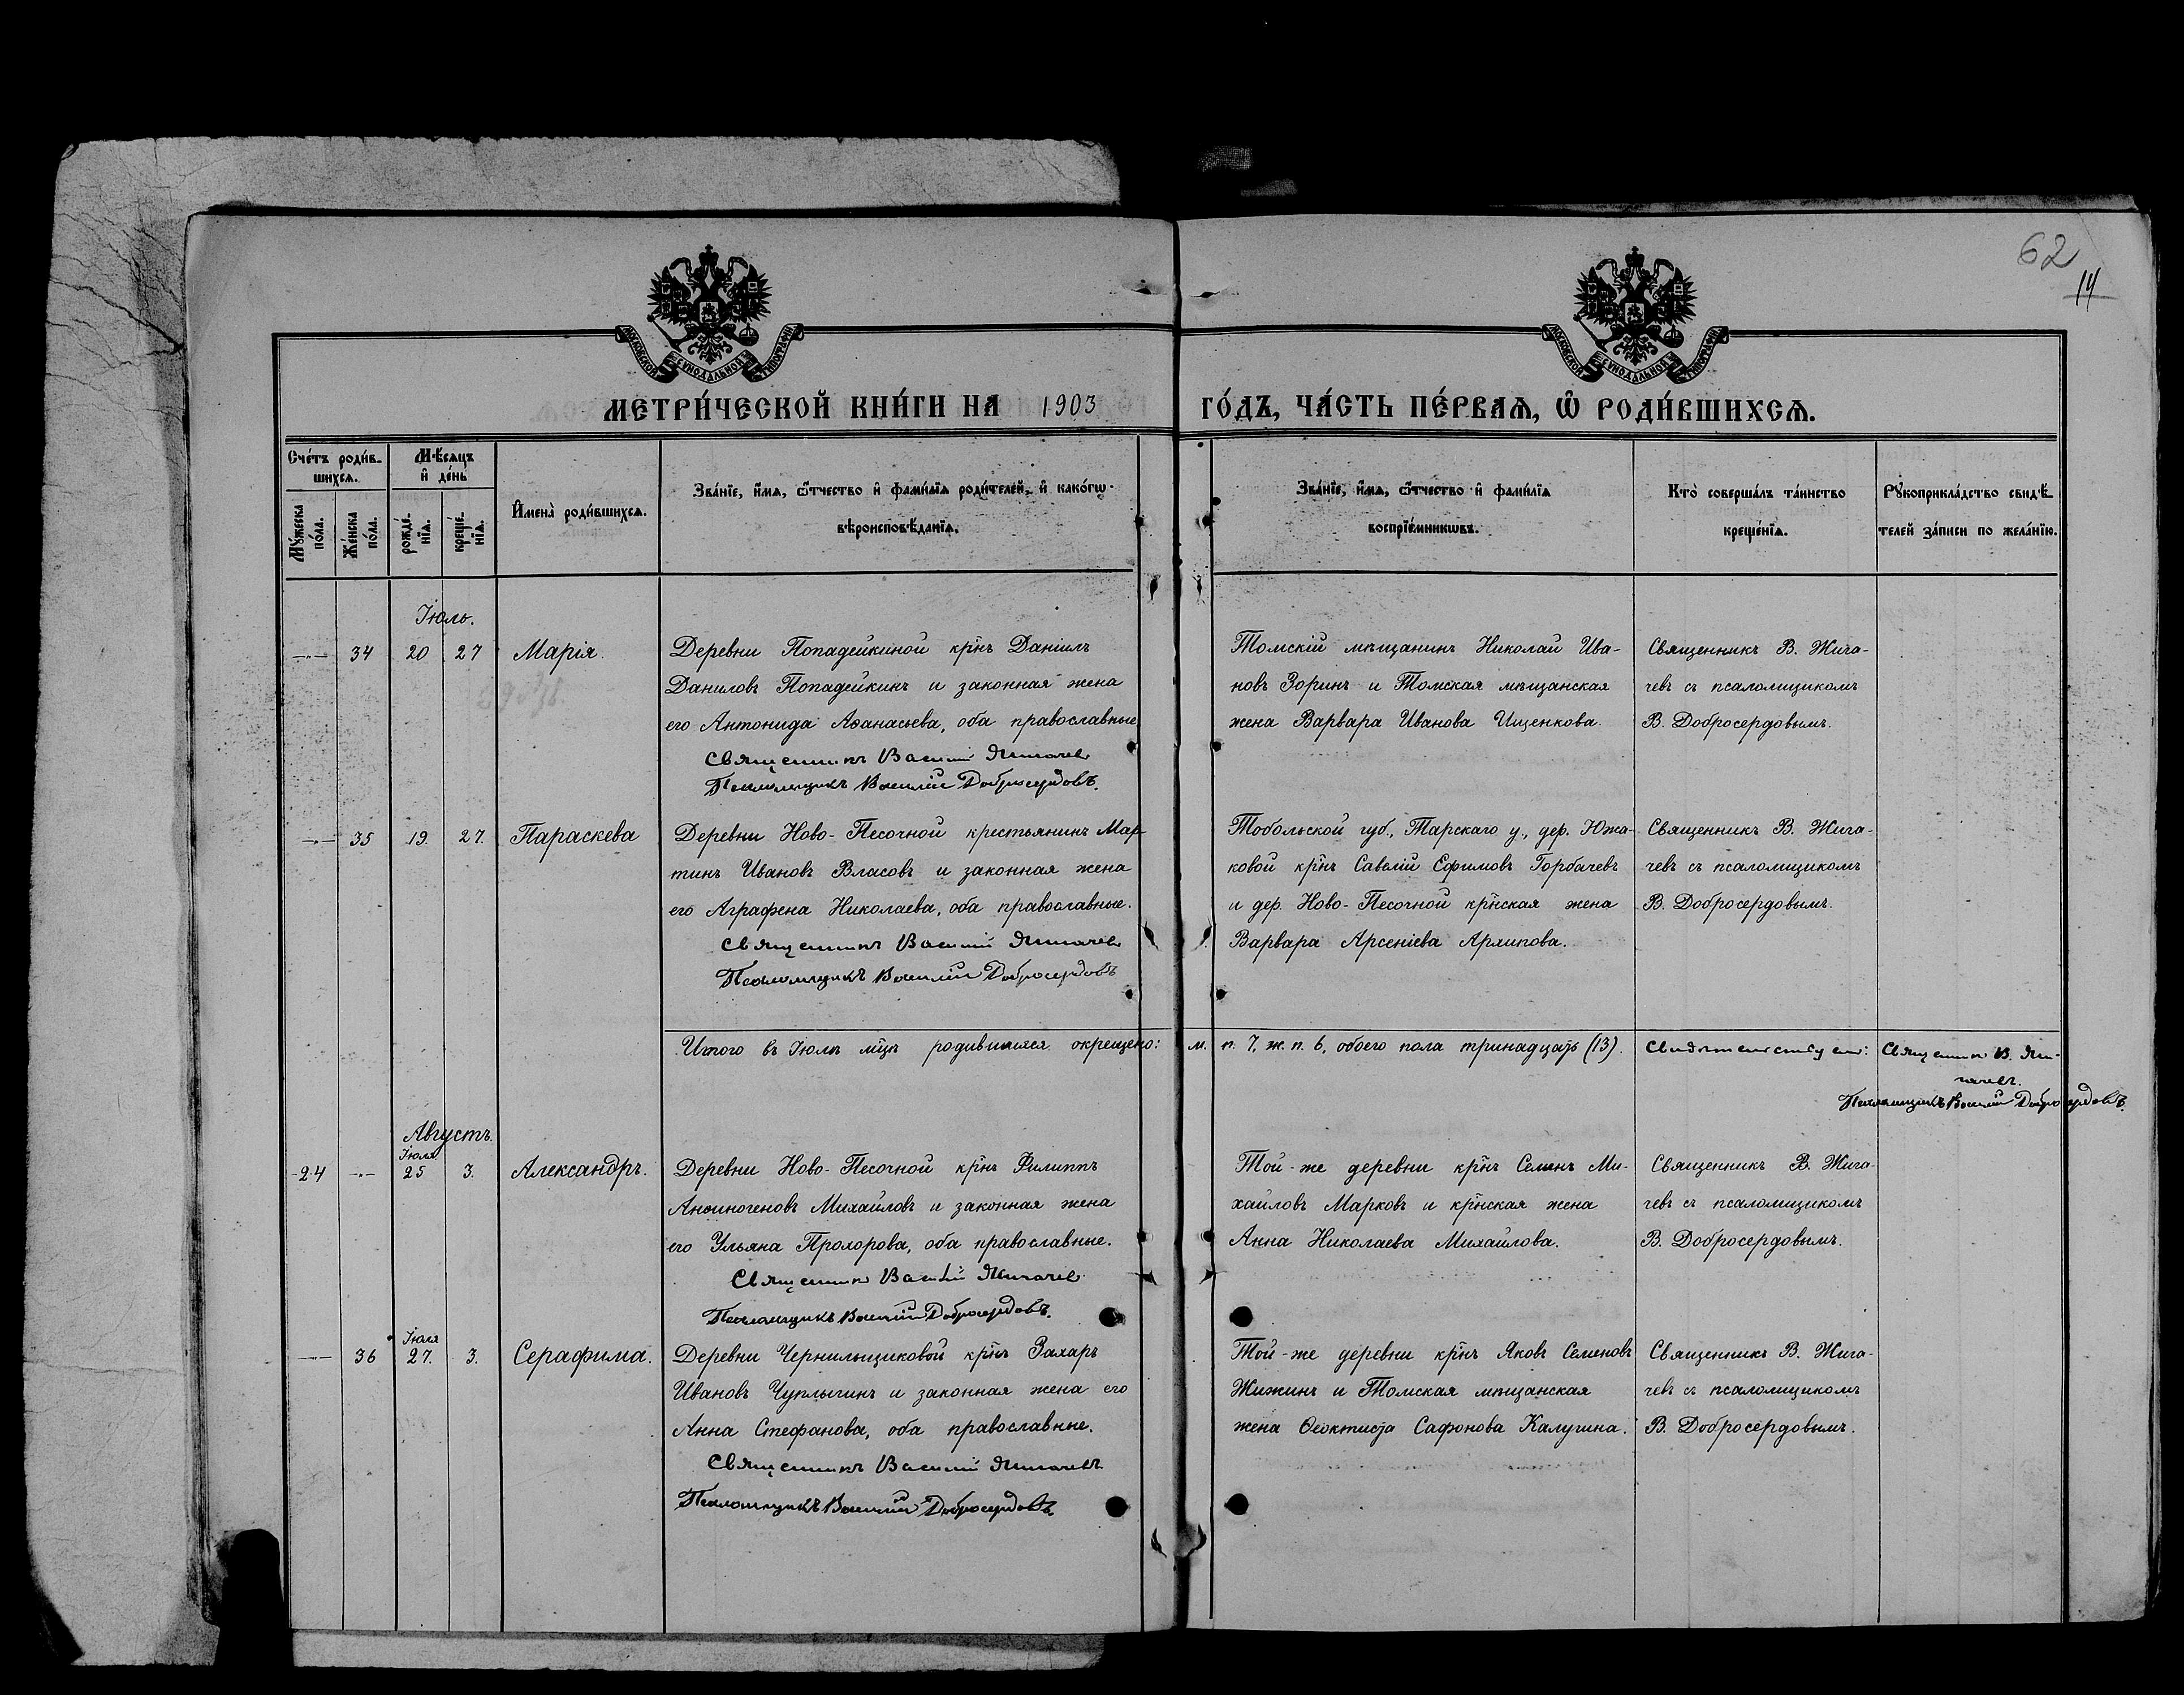 62
14
МОСКОВСКОЙ СѴНОДАЛЬНОЙ ТИПОГРАФІИ
МОСКОВСКОЙ СѴНОДАЛЬНОЙ ТИПОГРАФІИ
МЕТРИ́ЧЕСКОЙ КНИ́ГИ НА 1903 ГО́ДЪ, ЧА́СТЬ ПЕ́РВАѦ, Ѡ҆ РОДИ́ВШИХСѦ.
Сче́тъ роди́в-
шихсѧ.
Мꙋ́жеска по́ла.
Же́нска по́ла.
Мѣ́сѧцъ
и҆ де́нь
рожде́-
нїѧ.
креще́-
нїѧ.
И҆мена̀ роди́вшихсѧ.
Зва́нїе, и҆́мѧ, ѻ҆́тчество и҆ фами́лїѧ роди́телей, и҆ како́гѡ
вѣроисповѣ́данїѧ.
Зва́нїе, и҆́мѧ, ѻ҆́тчество и҆ фами́лїѧ
воспрїе́мникѡвъ.
Кто̀ соверша́лъ та́инство
креще́нїѧ.
Рꙋкоприкла́дство свидѣ́-
телей за́писи по жела́нїю.
Іюль.
—·— 34 20 27 Марія.
Деревни Попадейкиной кр̃нъ Даніилъ
Даниловъ Попадейкинъ и законная жена
его Антонида Аѳанасьева, оба православные
Священникъ Василій Жигачев
Псаломщикъ Василій Добросердовъ.
Томскій мѣщанинъ Николай Ива-
новъ Зоринъ и Томская мѣщанская
жена Варвара Иванова Ищенкова.
Священникъ В. Жига-
чевъ съ псаломщикомъ
В. Добросердовымъ.
—·— 35 19. 27. Параскева
Деревни Ново-Песочной крестьянинъ Мар-
тинъ Ивановъ Власовъ и законная жена
его Аграфена Николаева, оба православные.
Священникъ Василій Жигачев
Псаломщикъ Василій Добросердовъ
Тобольской губ., Тарскаго у., дер. Южа-
ковой кр̃нъ Савелій Ефимовъ Горбачевъ
и дер. Ново-Песочной кр̃нская жена
Варвара Арсеніева Архипова.
Священникъ В. Жига-
чевъ съ псаломщикомъ
В. Добросердовымъ.
Итого въ Іюлѣ мц̃ѣ родившихся окрещено: м. п. 7, ж. п. 6, обоего пола тринадцать (13).
Свидѣтельствуем: Священник В. Жи-
гачевъ.
Псаломщикъ Василій Добросердовъ.
Августъ.
Іюля
24 —·— 25 3. Александръ.
Деревни Ново-Песочной кр̃нъ Филиппъ
Аѳиногеновъ Михайловъ и законная жена
его Ульяна Прохорова, оба православные.
Священник Василій Жигачев
Псаломщикъ Василій Добросердовъ.
Той-же деревни кр̃нъ Семенъ Ми-
хайловъ Марковъ и кр̃нская жена
Анна Николаева Михайлова.
Священникъ В. Жига-
чевъ съ псаломщикомъ
В. Добросердовымъ.
Іюля
—·— 36 27. 3. Серафима.
Деревни Чернильщиковой кр̃нъ Захаръ
Ивановъ Чуплыгинъ и законная жена его
Анна Стефанова, оба православные.
Священникъ Василій Жигачевъ
Псаломщикъ Василій Добросердовъ.
Той-же деревни кр̃нъ Яковъ Семеновъ
Жижинъ и Томская мѣщанская
жена Ѳеоктиста Сафонова Калугина.
Священникъ В. Жига-
чевъ съ псаломщикомъ
В. Добросердовымъ.